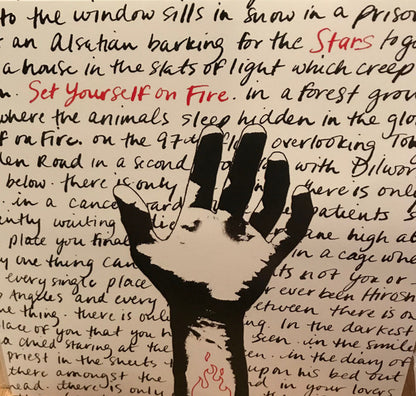 to the window sills in snow in a prison
an Alsatian barking for the Stars to go
a house in the slats of light which creep
Set Yourself on Fire. in a forest grou
where the animals sleep hidden in the glo
f on Fire. on the 97th overlooking Tom
den Road in a second with Dilwor
below. there is only here is only
in a cance ard patients
ently waiting
place you final ane high at
y one thing can in a cage whe
every single place ts not you or
Angeles and every r ever been Hirosh
me thing. there is onl etween there is o
lace of you that you h ng. in the darkest
a child staring at the een. in the smile
priest in the sheets en. in the diary of
there amongst the upon his bed out
head. there is only d in your lovers